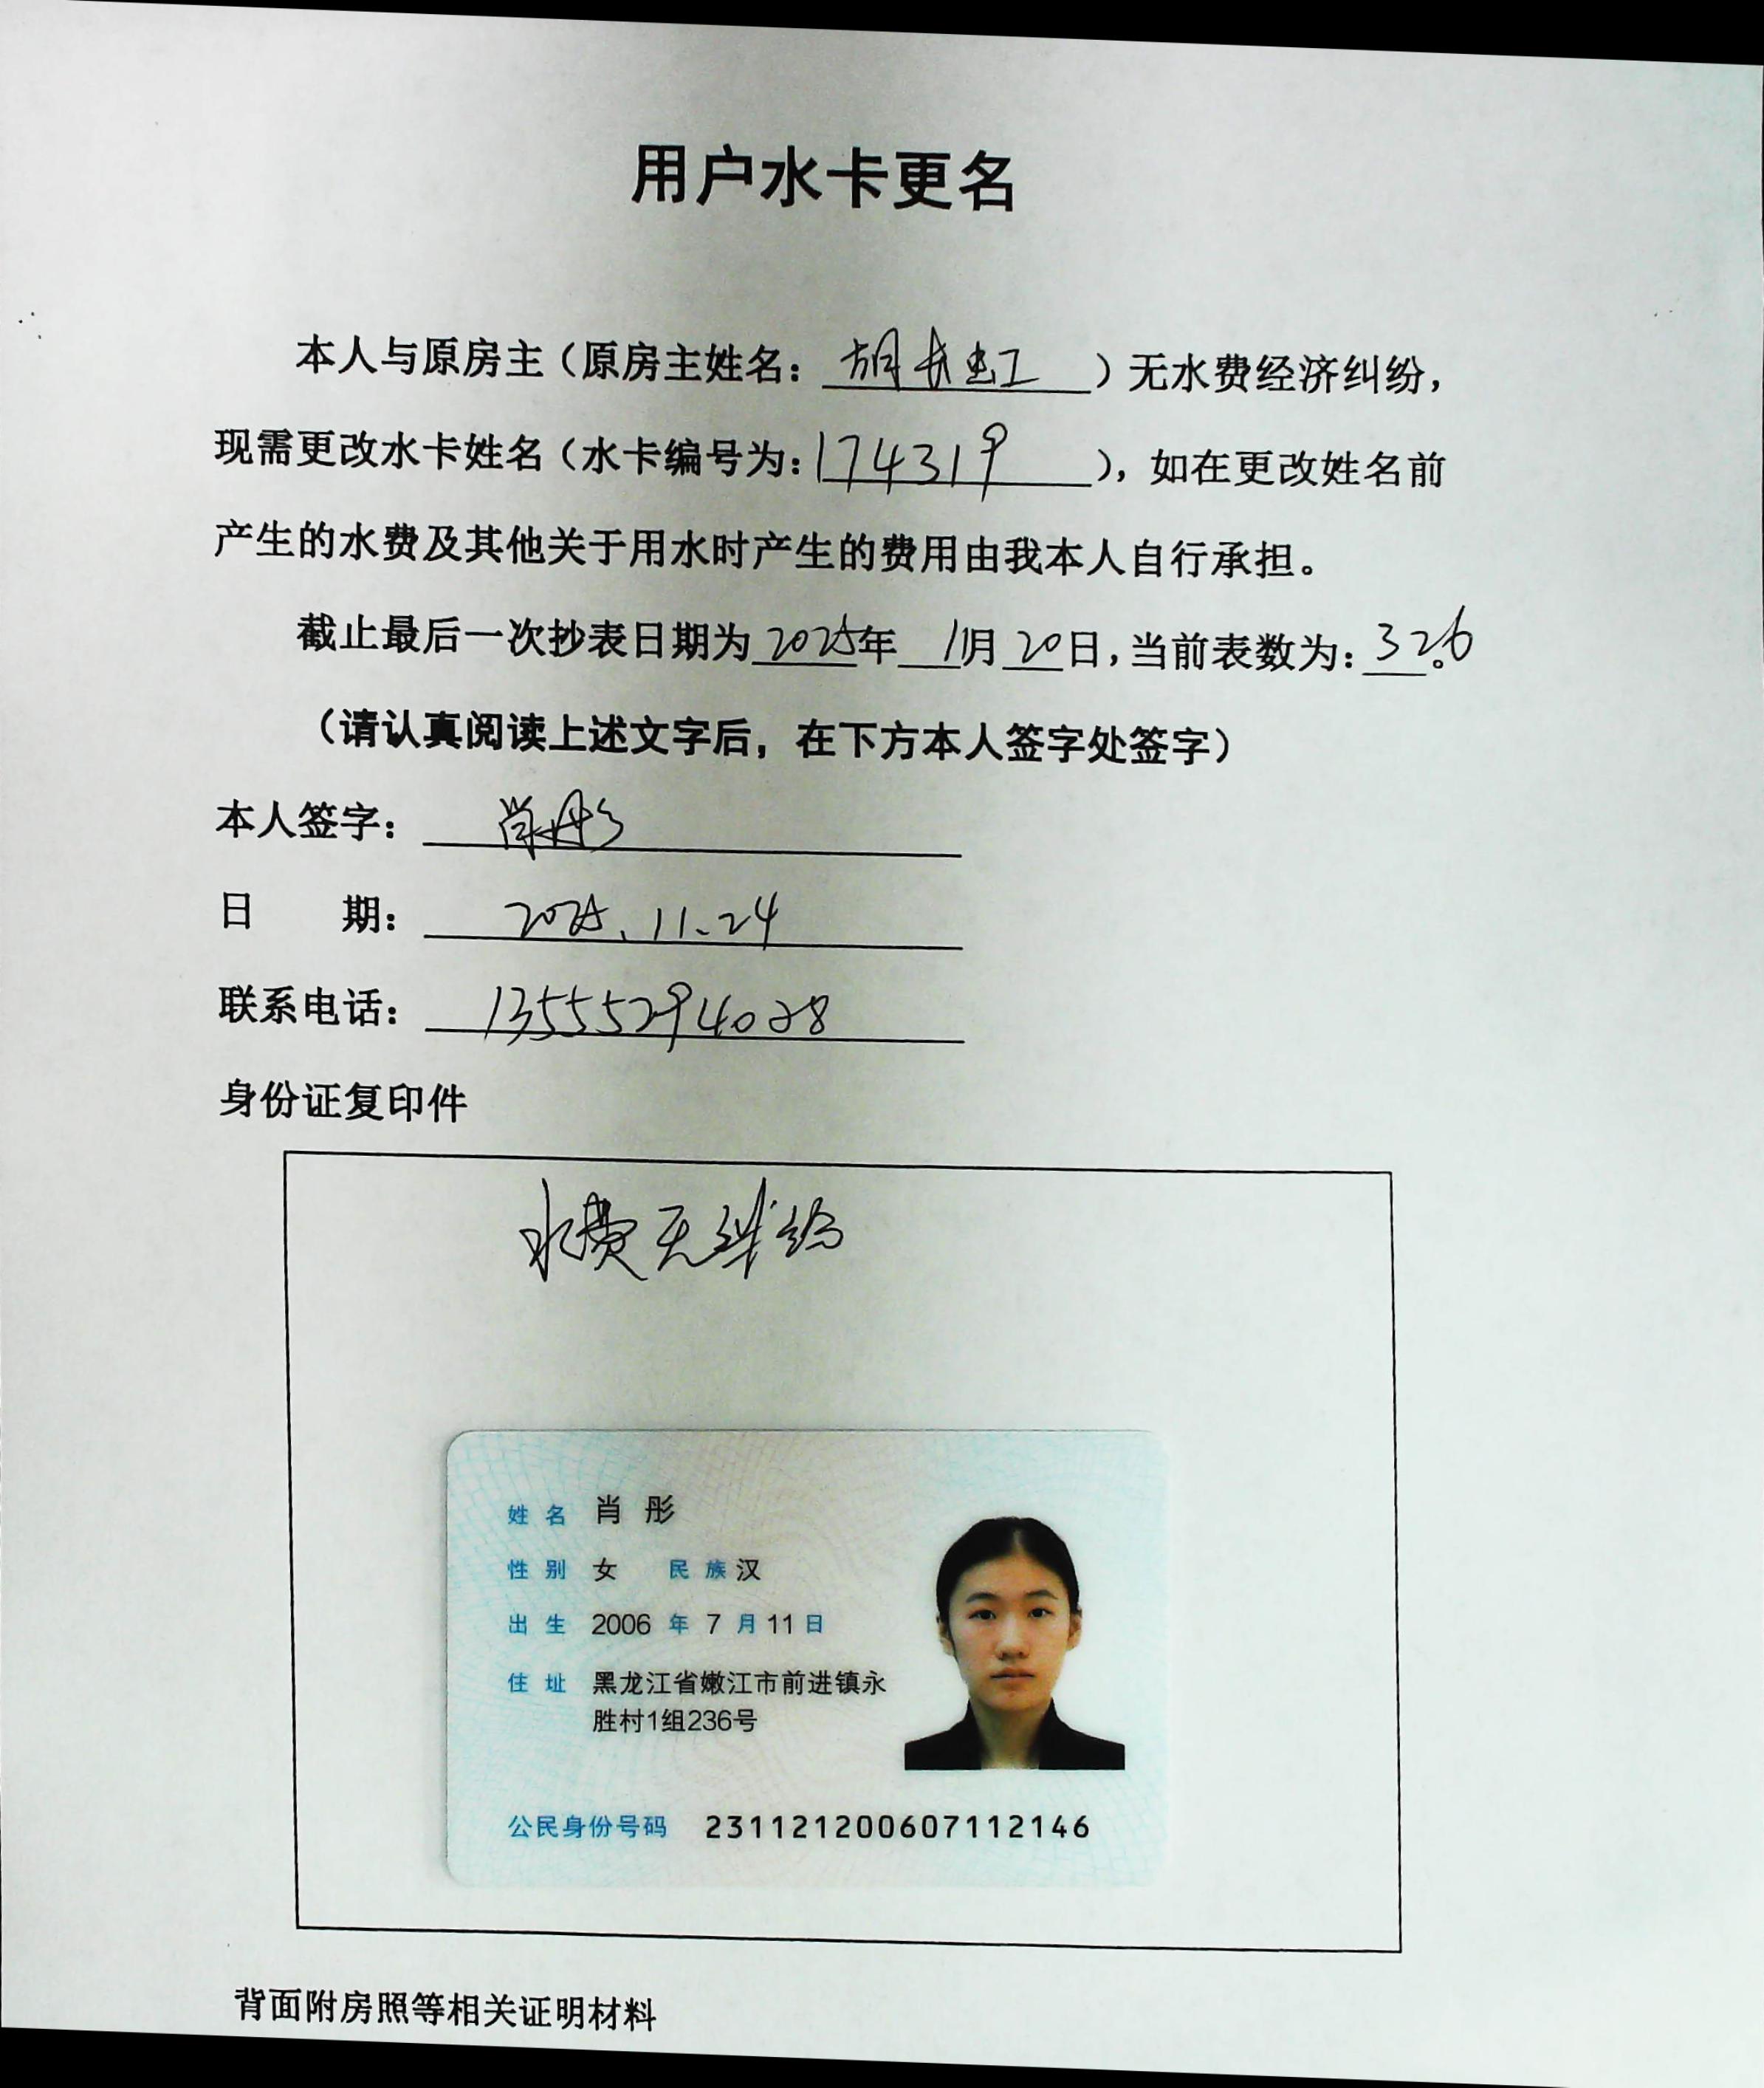 用户水卡更名
本人与原房主（原房主姓名：胡长虹）无水费经济纠纷，
现需更改水卡姓名（水卡编号为：174319），如在更改姓名前
产生的水费及其他关于用水时产生的费用由我本人自行承担。
截止最后一次抄表日期为2025年11月20日，当前表数为：326。
（请认真阅读上述文字后，在下方本人签字处签字）
本人签字：肖彤
日 期：2025.11.24
联系电话：13555294028
身份证复印件
水费无纠纷
姓名 肖彤
性别 女 民族 汉
出生 2006 年 7 月 11 日
住址 黑龙江省嫩江市前进镇永
胜村1组236号
公民身份号码 231121200607112146
背面附房照等相关证明材料